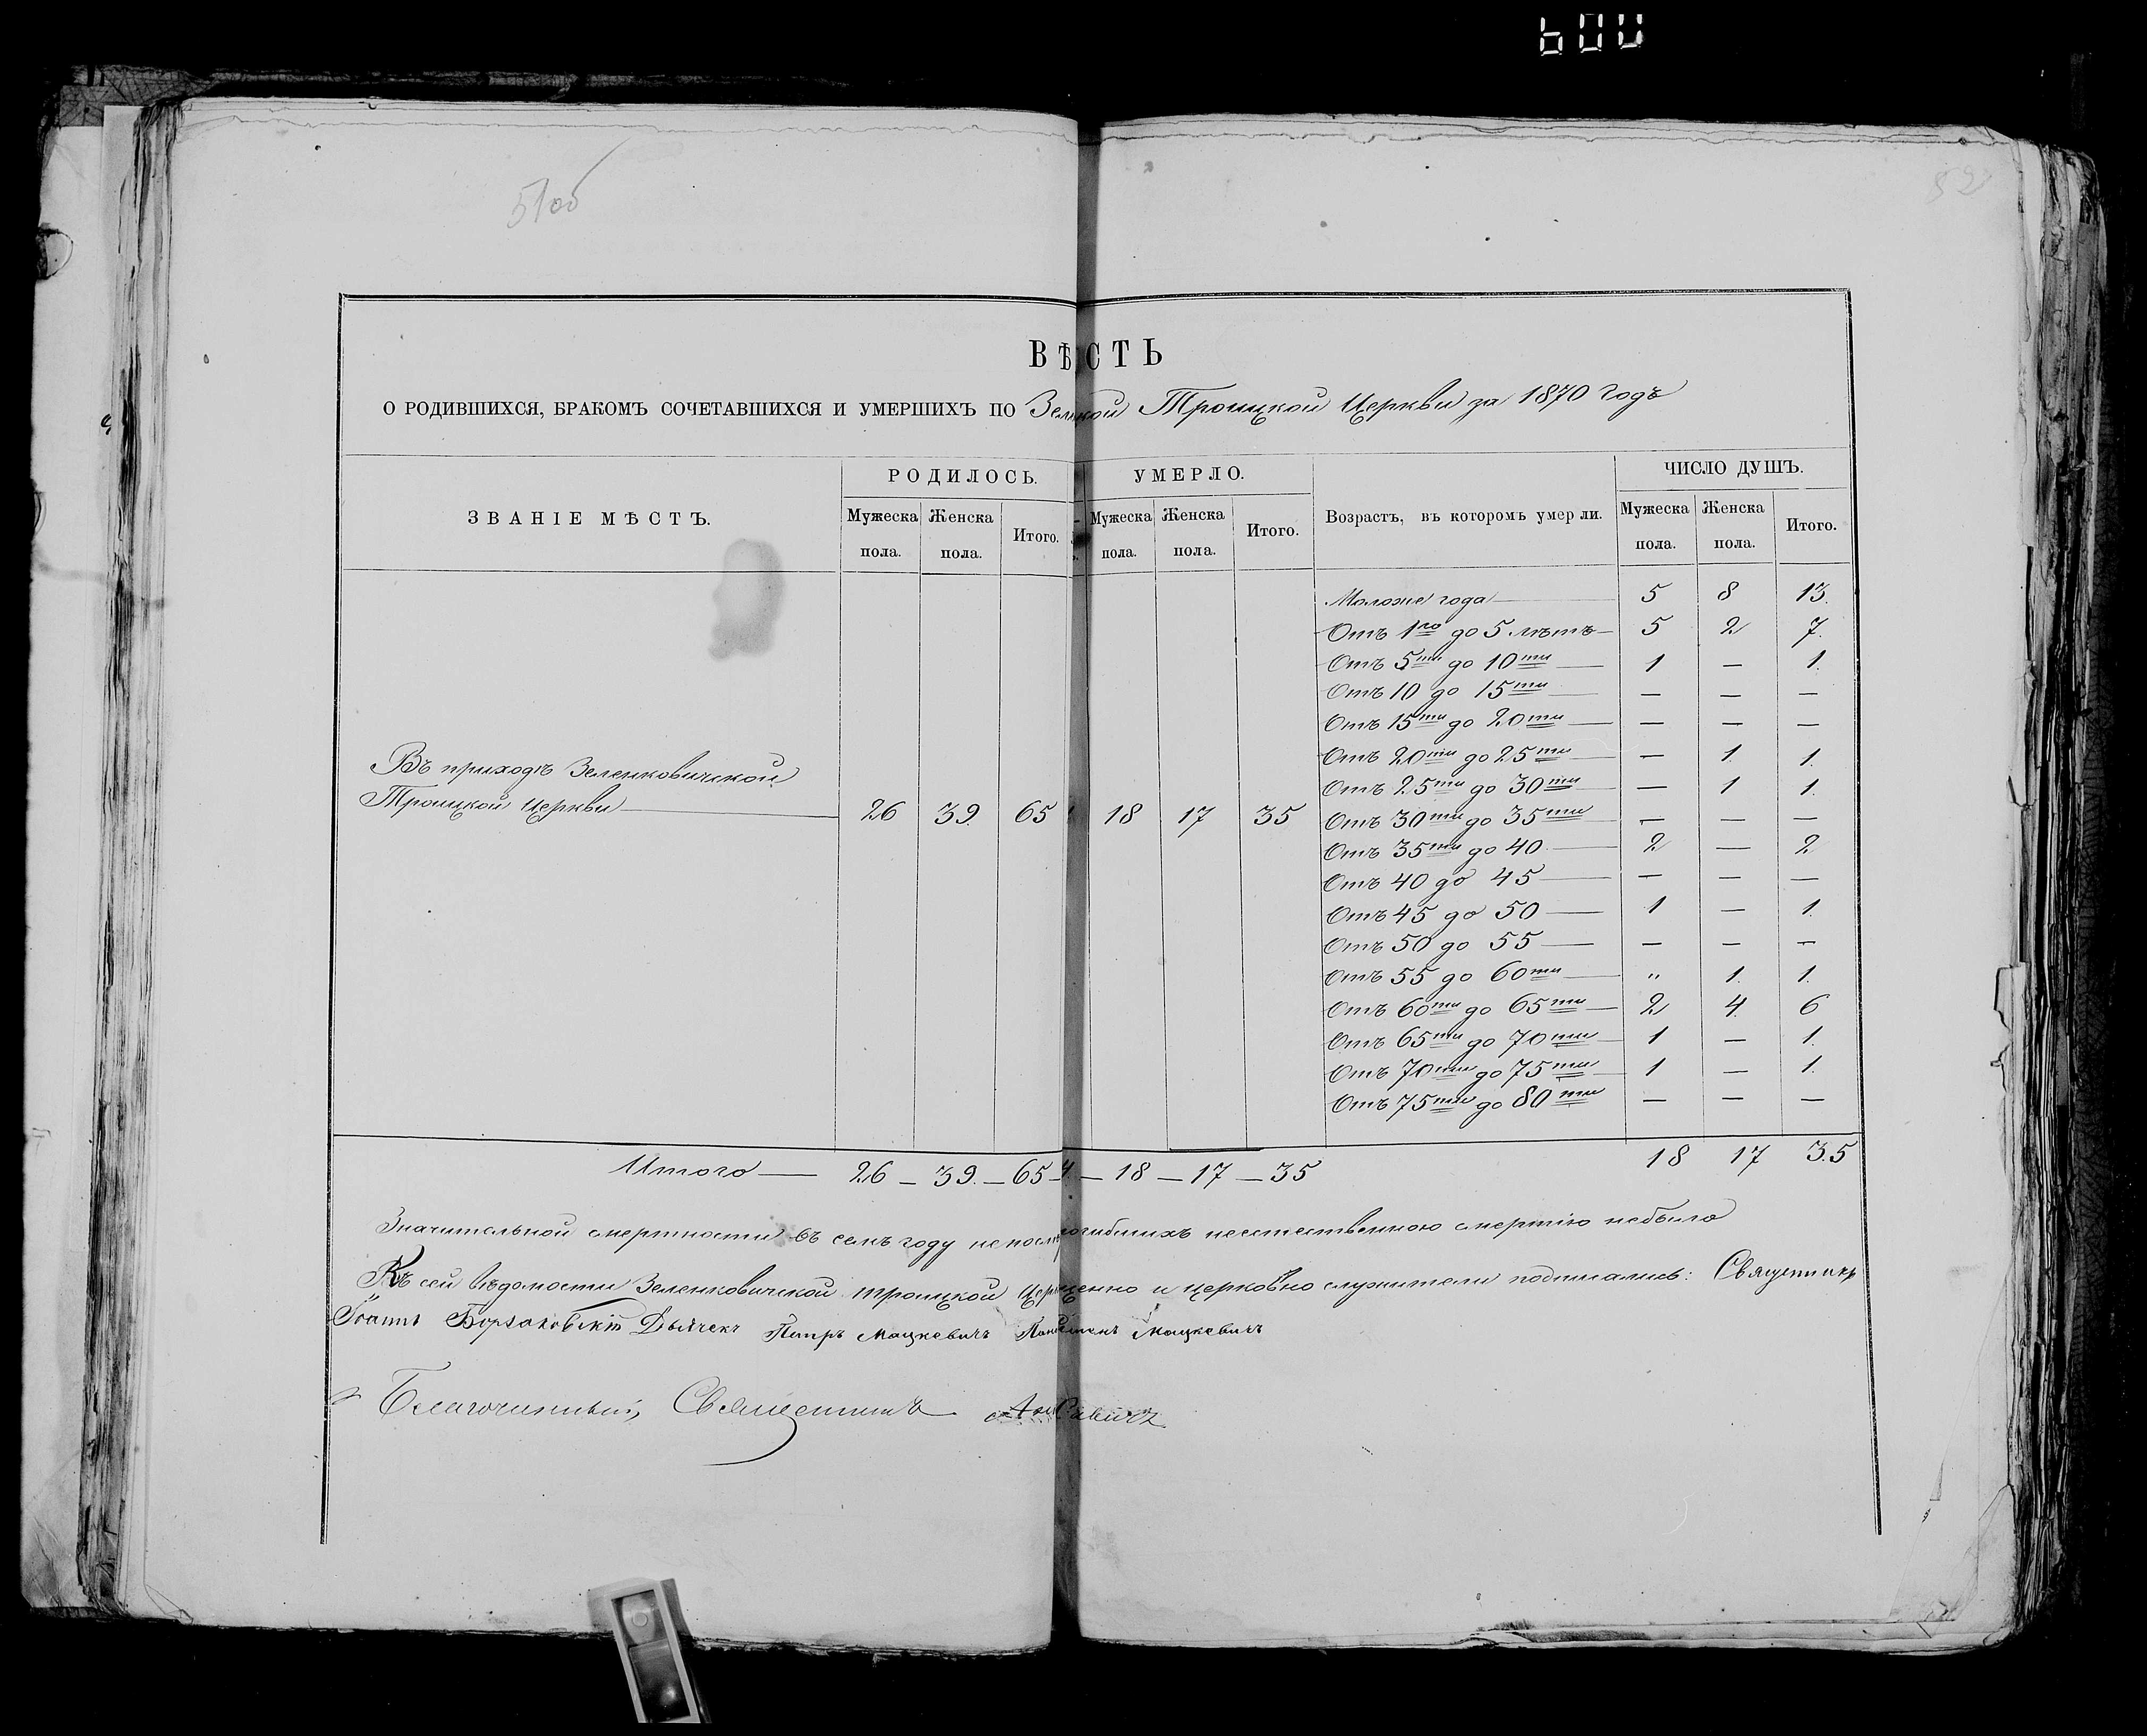 600
51об
52
ВѢСТЬ
О РОДИВШИХСЯ, БРАКОМЪ СОЧЕТАВШИХСЯ И УМЕРШИХЪ ПО Зеленкой Троицкой Церкви за 1870 годъ
ЗВАНІЕ МѢСТЪ. РОДИЛОСЬ. УМЕРЛО. Возрастъ, въ которомъ умерли. ЧИСЛО ДУШЪ.
Мужеска пола. Женска пола. Итого. Мужеска пола. Женска пола. Итого. Мужеска пола. Женска пола. Итого.
Моложе года — 5 8 13.
Отъ 1го до 5 лѣтъ — 5 2 7.
Отъ 5ти до 10ти — 1 — 1.
Отъ 10 до 15ти — — — —
Отъ 15ти до 20ти — — — —
Отъ 20ти до 25ти — — 1. 1.
Отъ 25ти до 30ти — — 1 1.
Отъ 30ти до 35ти — — — —
Отъ 35ти до 40 — 2 — 2
Отъ 40 до 45 — — — —
Отъ 45 до 50 — 1 — 1.
Отъ 50 до 55 — — — —
Отъ 55 до 60ти — „ 1. 1.
Отъ 60ти до 65ти — 2 4. 6
Отъ 65ти до 70ти — 1 — 1.
Отъ 70ти до 75ти — 1 — 1.
Отъ 75ти до 80ти — — — —
Въ приходѣ Зеленковичской
Троицкой Церкви — 26 39. 65 18 17 35
Итого — 26 — 39. — 65 — 4. — 18 — 17 — 35 18 17 35
Значительной смертности въ семъ году не погибшихъ неестественною смертію небыло
Къ сей вѣдомости Зеленковичской Троицкой и церковно служители подписались: Священникъ
Іоаннъ Дьячекъ Петръ Мацкевичъ Мацкевичъ
Благочинный, Священникъ